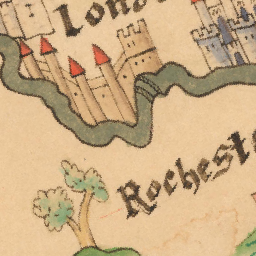 Londo
Rocheste